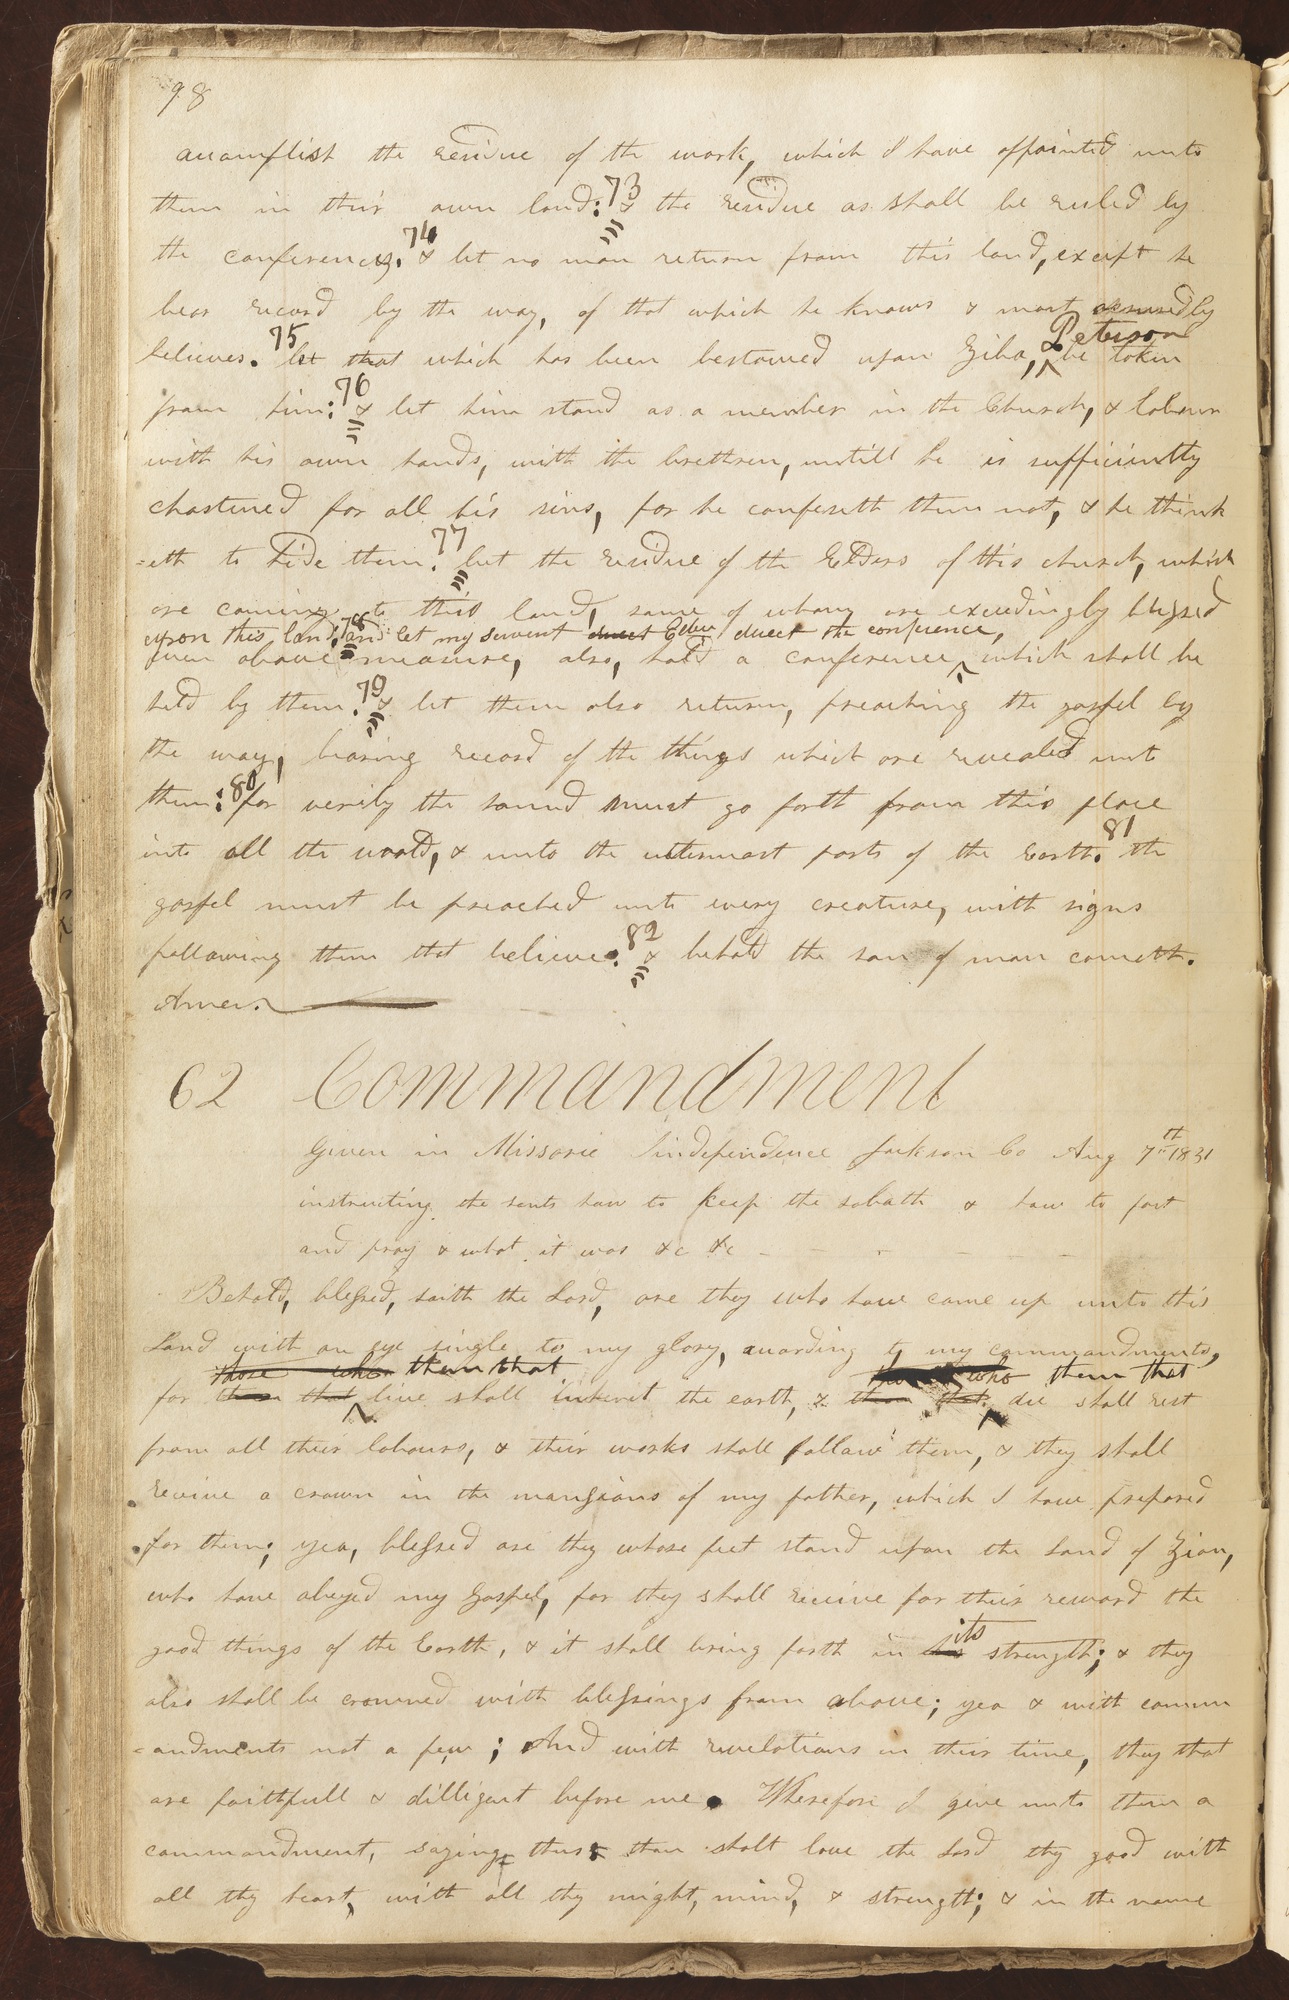 98
accomplish the residue of the work, which I have appointed unto
them in their own land: 73 & the residue as shall be ruled by
the conferences. 74 & let no man return from this land, except he
bear record by the way, of that which he knows & most assuredly
believes. 75 let that which has been bestowed upon Ziba, Peterson be taken
from him: 76 & let him stand as a member in the Church, & labour
with his own hands, with the brethren, untill he is sufficiently
chastened for all his sins, for he confeseth them not, & he think
=eth to hide them. 77 let the residue of the Elders of this church, which
are coming to this land, some of whom are exceedingly blessed
upon this land; 78 and let my servent direct the conference,
even above measure, also, hold a conference which shall be
held by them. 79 & let them also return, preaching the gospel by
the way, bearing record of the things which are revealed unto
them: 80 for verily the sound must go forth from this place
into all the world, & unto the uttermost parts of the Earth. 81 the
gospel must be preached unto every creature, with signs
following them that believe. 82 & behold the son of man cometh.
Amen.
62 Commandment
Given in Missorie Independence Jackson Co Aug 7th 1831
instructing the sents how to keep the sabath & how to fast
and pray & what it was &c &c
Behold, blessed, saith the Lord, are they who have come up unto this
Land with an eye single to my glory, according to my commandments,
those who them that who them that
for them that live shall inherit the earth, & them that die shall rest
from all their labours, & their works shall follow them, & they shall
receive a crown in the mansions of my father, which I have prepared
for them; yea, blessed are they whose feet stand upon the Land of Zion,
who have obeyed my Gospel, for they shall receive for their reward the
good things of the Earth, & it shall bring forth in his its strength; & they
also shall be crowned with blessings from above; yea & with comm
=andments not a few; And with revelations in their time, they that
are faithfull & dilligent before me. Wherefore I give unto them a
commandment, saying thus thou shalt love the Lord thy good with
all thy heart, with all thy might, mind, & strength; & in the name